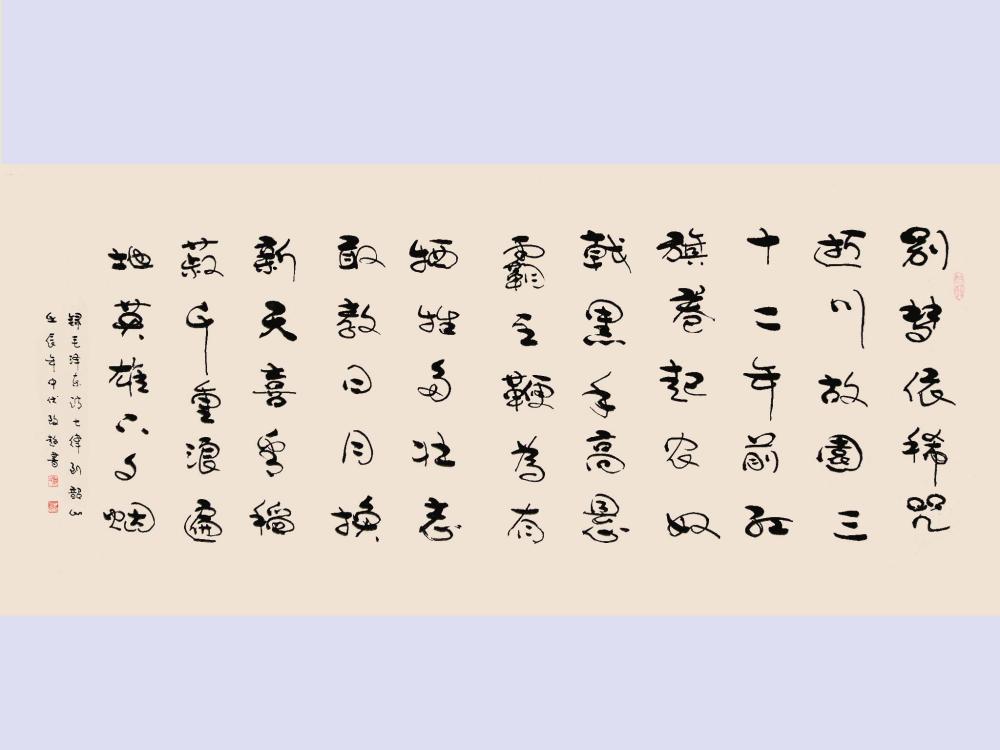 别梦依稀咒
逝川故園三
十二年前红
旗卷起农奴
戟黑手高悬
霸主鞭為有
牺牲多壮志
敢教日月换
新天喜看稻
菽千重浪遍
地英雄下夕烟
錄毛泽东诗七律到韶山
壬辰年中伏書